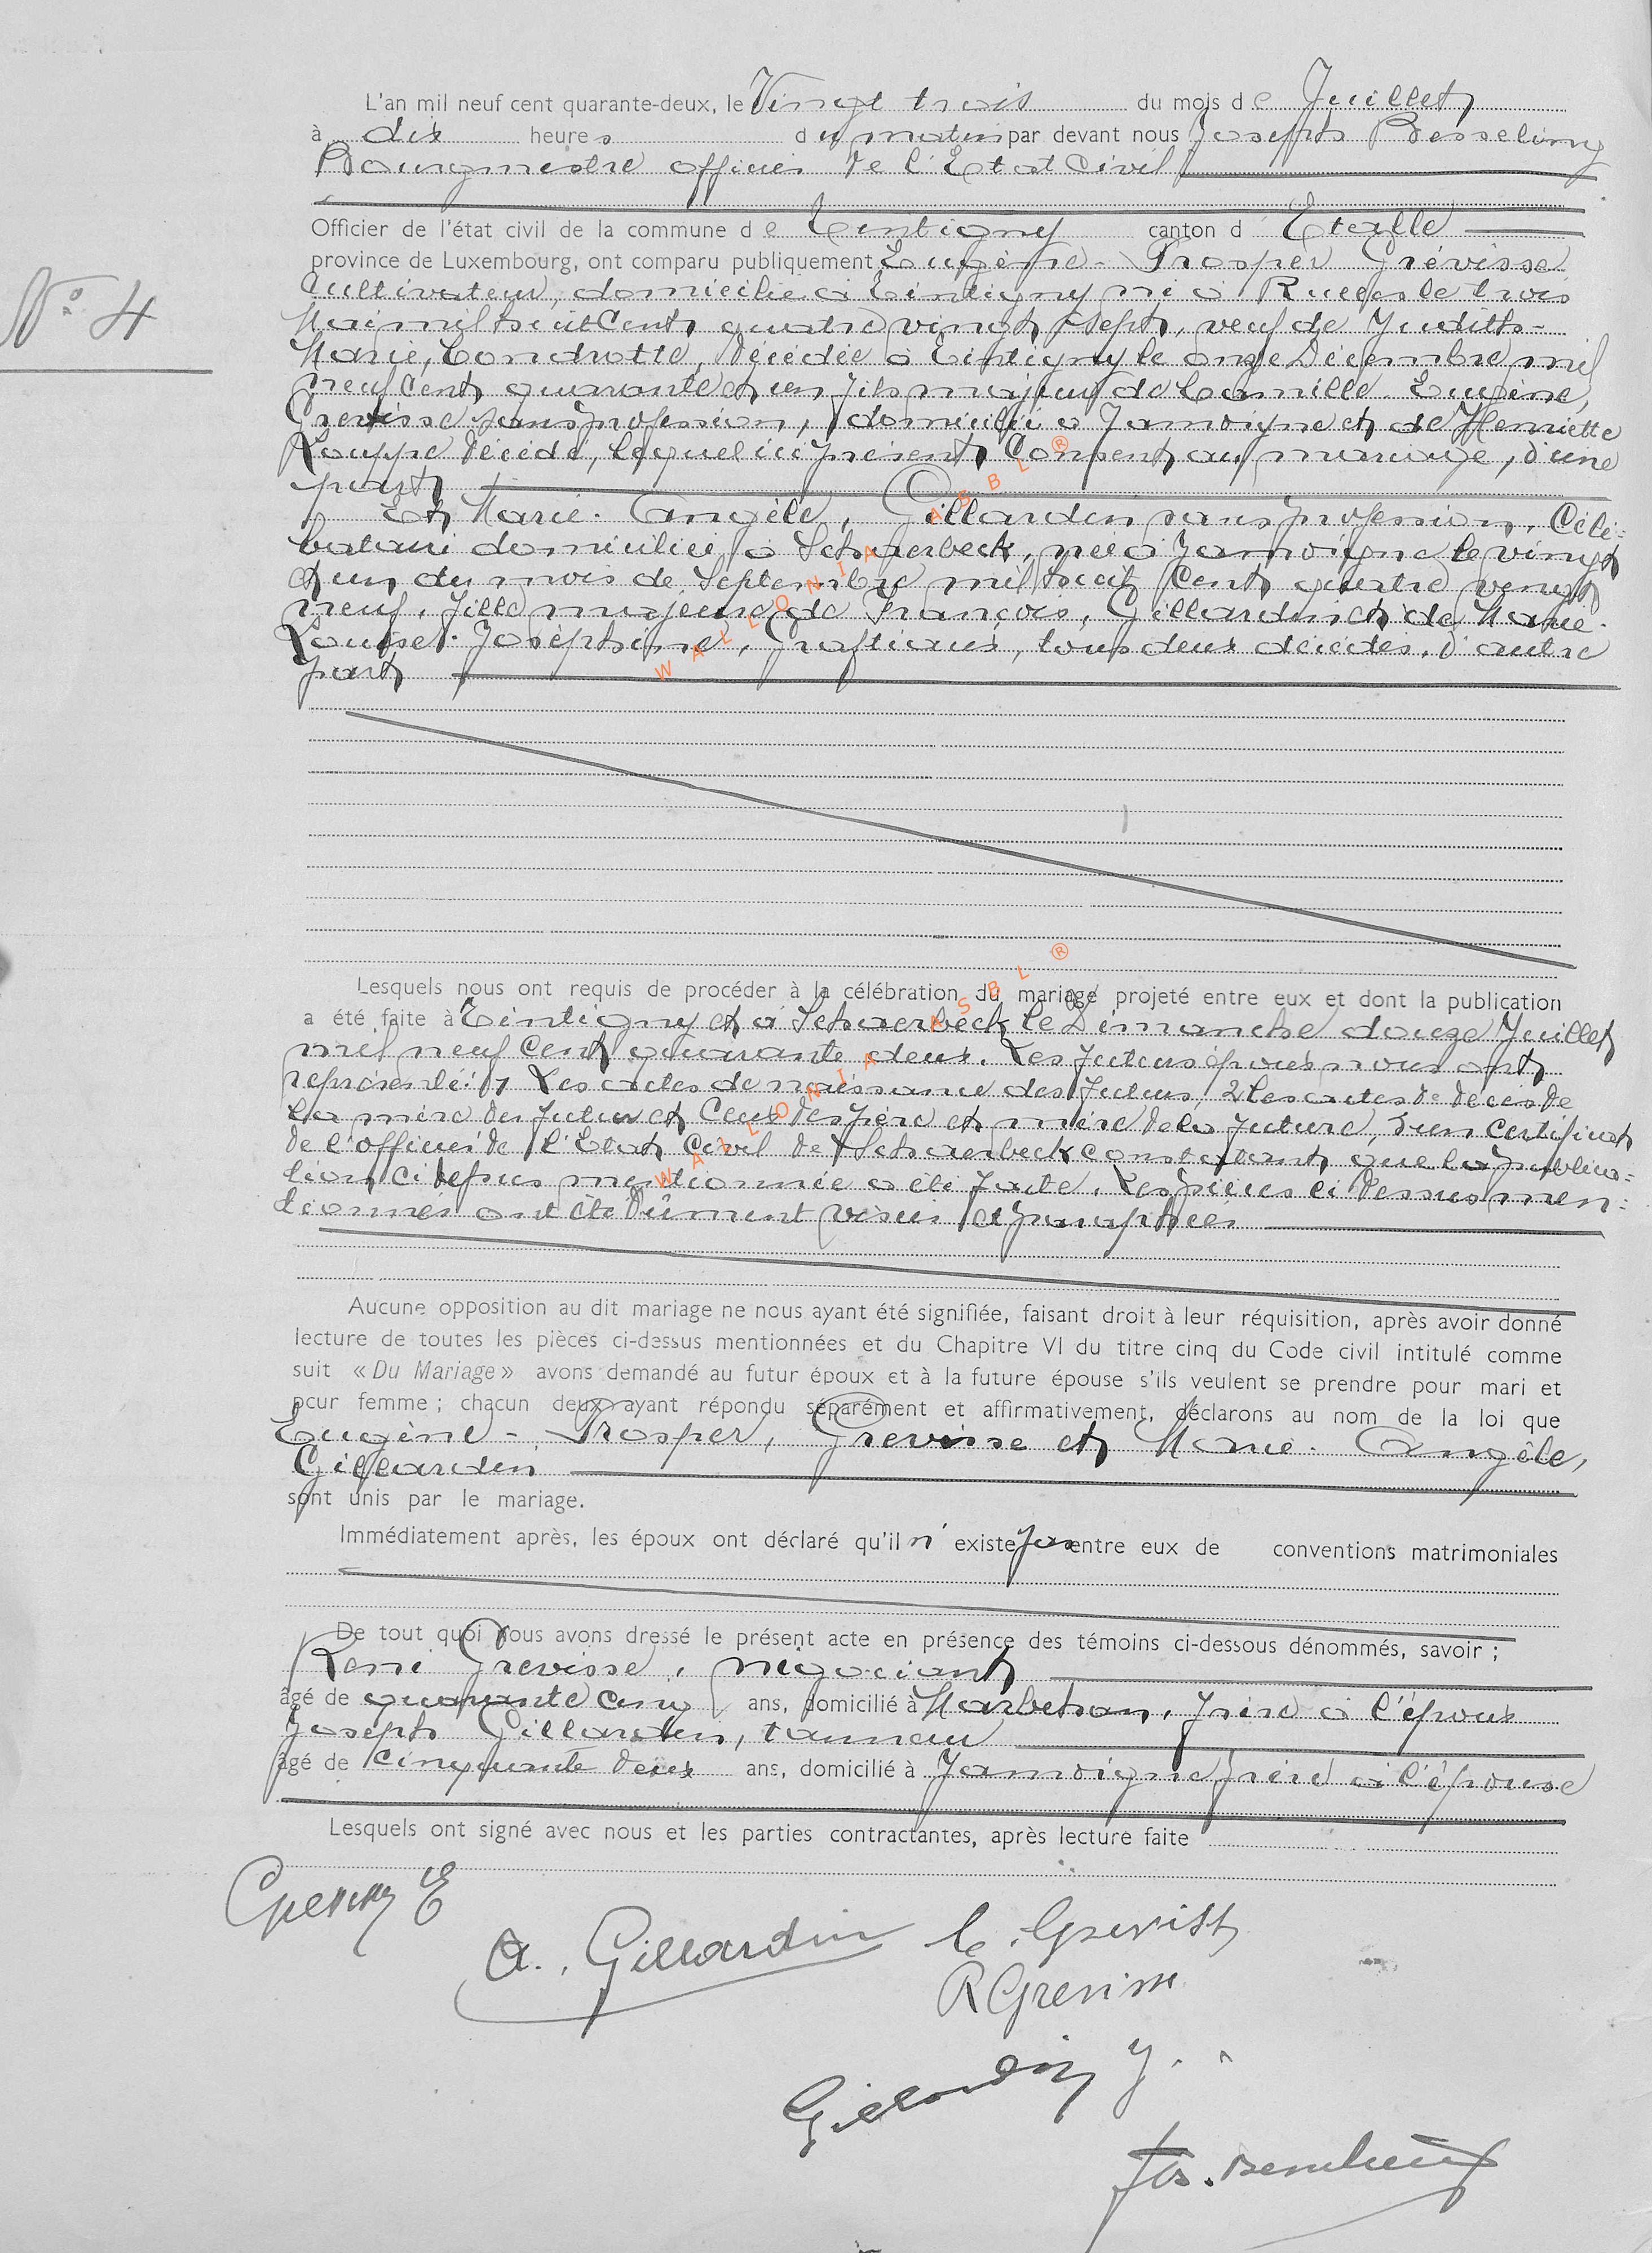 L'an mil neuf cent quarante-deux, le Vingt trois du mois de Juillet
à dix heures du matin par devant nous Joseph Besseling
Bourgmestre officier de l'Etat Civil
Officier de l'état civil de la commune de Tintigny canton d' Etalle
province de Luxembourg, ont comparu publiquement Eugène - Prosper Grévisse
Cultivateur, domicilié à Tintigny né à Rulles le trois
Mai mil huit Cent quatre vingt sept, veuf de Judith -
Marie, Condrotte, décédée à Tintigny le onze Décembre mil
neuf cent quarante et un fils majeur de Camille Eugène,
Grevisse sans profession, domicilié à Jamoigne et de Henriette
Rouppe décédé, lequel ici présent Consent au mariage, d'une
part
N° 4
Et Marie - Angèle, Gillardin sans profession, Céli=
bataire domiciliée à Schaerbeek, née à Jamoigne le vingt
et un du mois de Septembre mil huit Cent quatre vingt
neuf, fille majeure de François, Gillardin et de Marie -
Louise - Joséphine, tous deux décédés, d'autre
part
Lesquels nous ont requis de procéder à la célébration du mariage projeté entre eux et dont la publication
a été faite à Tintigny et à Schaerbeek le Dimanche douze Juillet
mil neuf Cent quarante deux. Les futurs époux nous ont
représenté: 1 Les actes de naissance des futurs, 2 les actes de décès de
la mère du futur et Ceux des père et mère de la future, 3 un certificat
de l'officier de l'Etat Civil de Schaerbeek constatant que la publica=
tion ci dessus mentionnée a été faite. Les pièces ci dessus men=
tionnés ont été dûment visées et paraphées
Aucune opposition au dit mariage ne nous ayant été signifiée, faisant droit à leur réquisition, après avoir donné
lecture de toutes les pièces ci-dessus mentionnées et du Chapitre VI du titre cinq du Code civil intitulé comme
suit « Du Mariage » avons demandé au futur époux et à la future épouse s'ils veulent se prendre pour mari et
pour femme ; chacun deux ayant répondu séparément et affirmativement, déclarons au nom de la loi que
Eugène - Prosper, Grevisse et Marie - Angèle,
Gillardin
sont unis par le mariage.
Immédiatement après, les époux ont déclaré qu'il n' existe pas entre eux de conventions matrimoniales
De tout quoi nous avons dressé le présent acte en présence des témoins ci-dessous dénommés, savoir ;
René Grevisse, négociant
âgé de quarante cinq ans, domicilié à Marbehan, frère à l'époux
Joseph Gillardin, tanneur
âgé de cinquante deux ans, domicilié à Jamoigne frère à l'épouse
Lesquels ont signé avec nous et les parties contractantes, après lecture faite
Grevisse E
A. Gillardin C. Grevisse
R Grevisse
Gillardin J.
WALLONIA ASBL ®
WALLONIA ASBL ®